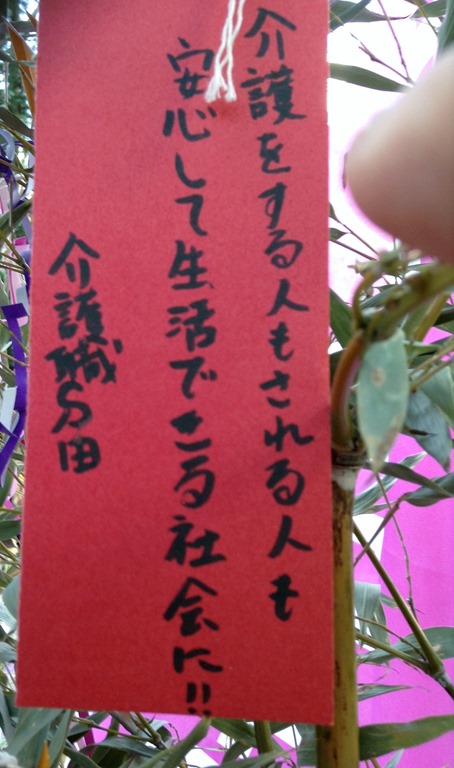 介護をする人もされる人も
安心して生活できる社会に!!
介護職S田